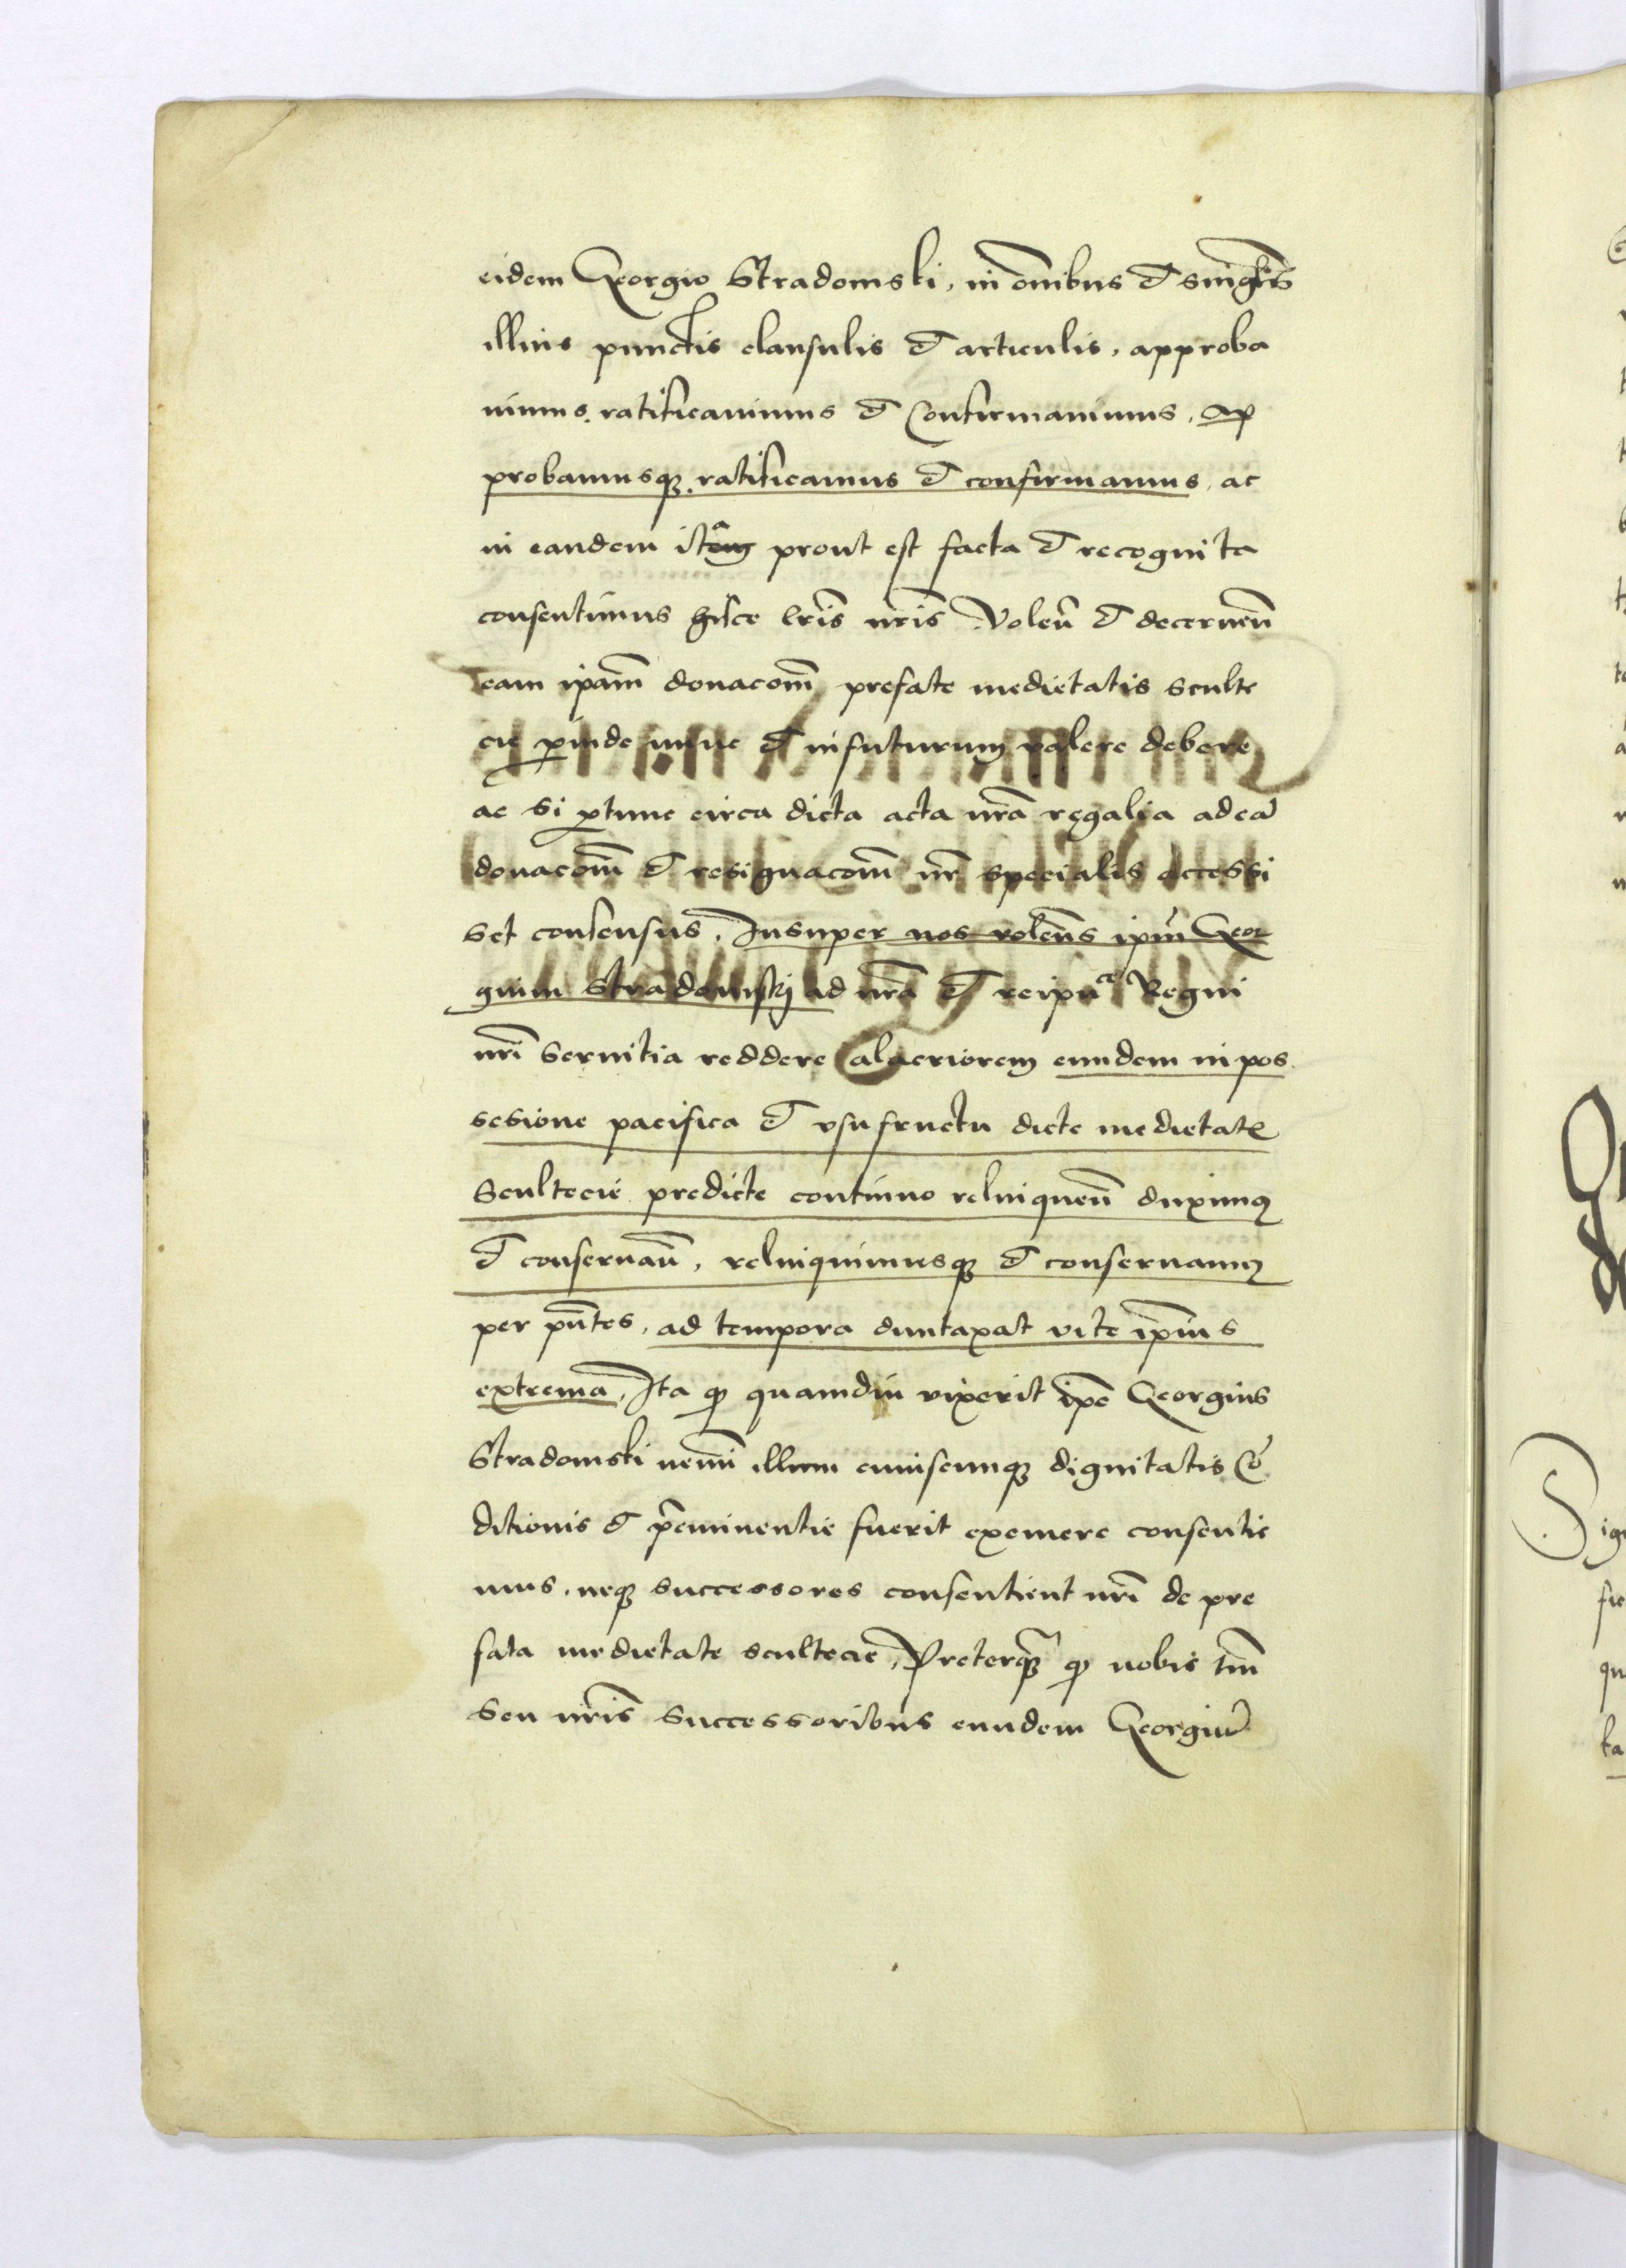 eidem Georgio Stradomski, in om̄ibus et singl̄is
illius punctis clausulis et articulis, approba
uimus ratificauimus et Confirmauimus, ap
probamusq; ratificamus et confirmamus, ac
in eandem ita prout est facta et recognita
consentimus hisce lr̄is nr̄is Volen̄ et decernen̄
eam ip̄am donacom̄ prefate medietatis sculte
cie p̱inde nunc et in futurum valere debere
ac si p̱tunc circa dicta acta nr̄a regalia ad eā
donacom̄ et resignacom̄ nr̄ specialis accessi
set consensus. Insuper nos volen̄s ip̄m Geor
gium Stradomskj ad nr̄a et reipu^ce Regni
nr̄i seruitia reddere alacriorem eundem in pos
sesione pacifica et vsufructu dicte medietatę
Scultecie predicte continuo relinquen̄ duximꝰ
et conseruan̄, relinquimusq; et conseruamꝰ
per pn̄tes, ad tempora duntaxat vite ip̄ius
extrema, Ita qͦ quamdiu vixerit ip̄e Georgius
Stradomski nem̄i illum cuiuscumq; dignitatis Cō
ditionis et p̄eminentie fuerit exemere consentie
mus, neq; successores consentient nr̄i de pre
fata medietate scultecie, Preterq̄ qͦ nobis tm̄
seu nr̄is successoribus eundem Georgiū